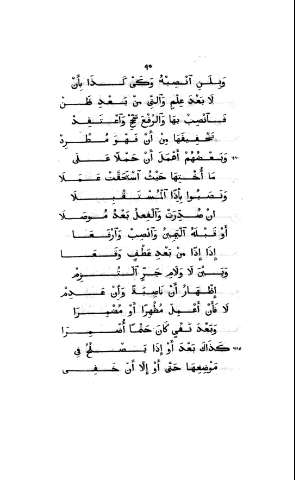 ٩٠
وَبِلَنِ ٱنْصِبْهُ وَكَىْ كَذَا بِأَنْ
لَا بَعْدَ عِلْمٍ وَٱلَّتِى مِنْ بَعْدِ ظَنّ
فَٱنْصِبْ بِهَا وَٱلرَّفْعَ صَحِّحْ وَٱعْتَقِدْ
تَخْفِيفَهَا مِنْ أَنَّ فَهْوَ مُطَّرِدْ
وَبَعْضُهُمْ أَهْمَلَ أَنْ حَمْلًا عَلَى
مَا أُخْتِهَا حَيْثُ ٱسْتَحَقَّتْ عَمَلَا
وَنَصَبُوا بِإِذًا ٱلْمُسْتَقْبَلَا
انْ صُدِّرَتْ وَٱلْفِعْلُ بَعْدُ مُوصَلَا
أَوْ قَبْلَهُ ٱلْيَمِينُ وَٱنْصِبْ وَٱرْفَعَا
إِذًا إِذَا مِنْ بَعْدِ عَطْفٍ وَقَعَا
وَبَيْنَ لَا وَلَامِ جَرٍّ ٱلْتُزِمْ
إِظْهَارُ أَنْ نَاصِبَةً وَإِنْ عُدِمْ
لَا فَأَنِ ٱعْمِلْ مُظْهِرًا أَوْ مُضْمِرَا
وَبَعْدَ نَفْىِ كَانَ حَتْمًا أُضْمِرَا
كَذَاكَ بَعْدَ أَوْ إِذَا يَصْلُحُ فِى
مَوْضِعِهَا حَتَّى أَوْ إِلَّا أَنْ خَفِى